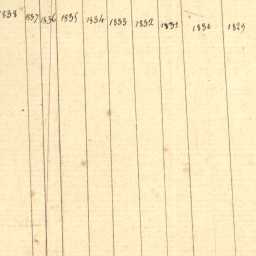 1838 1837 1836 1835 1834 1833 1832 1831 1830 1829